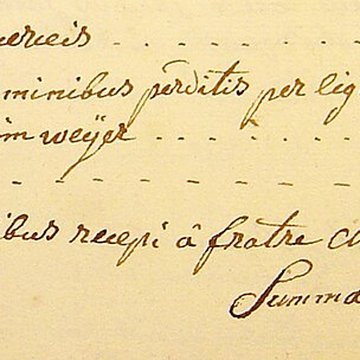 minibus perditis per lig
im weÿer
ibus recepi â fratre
Summa